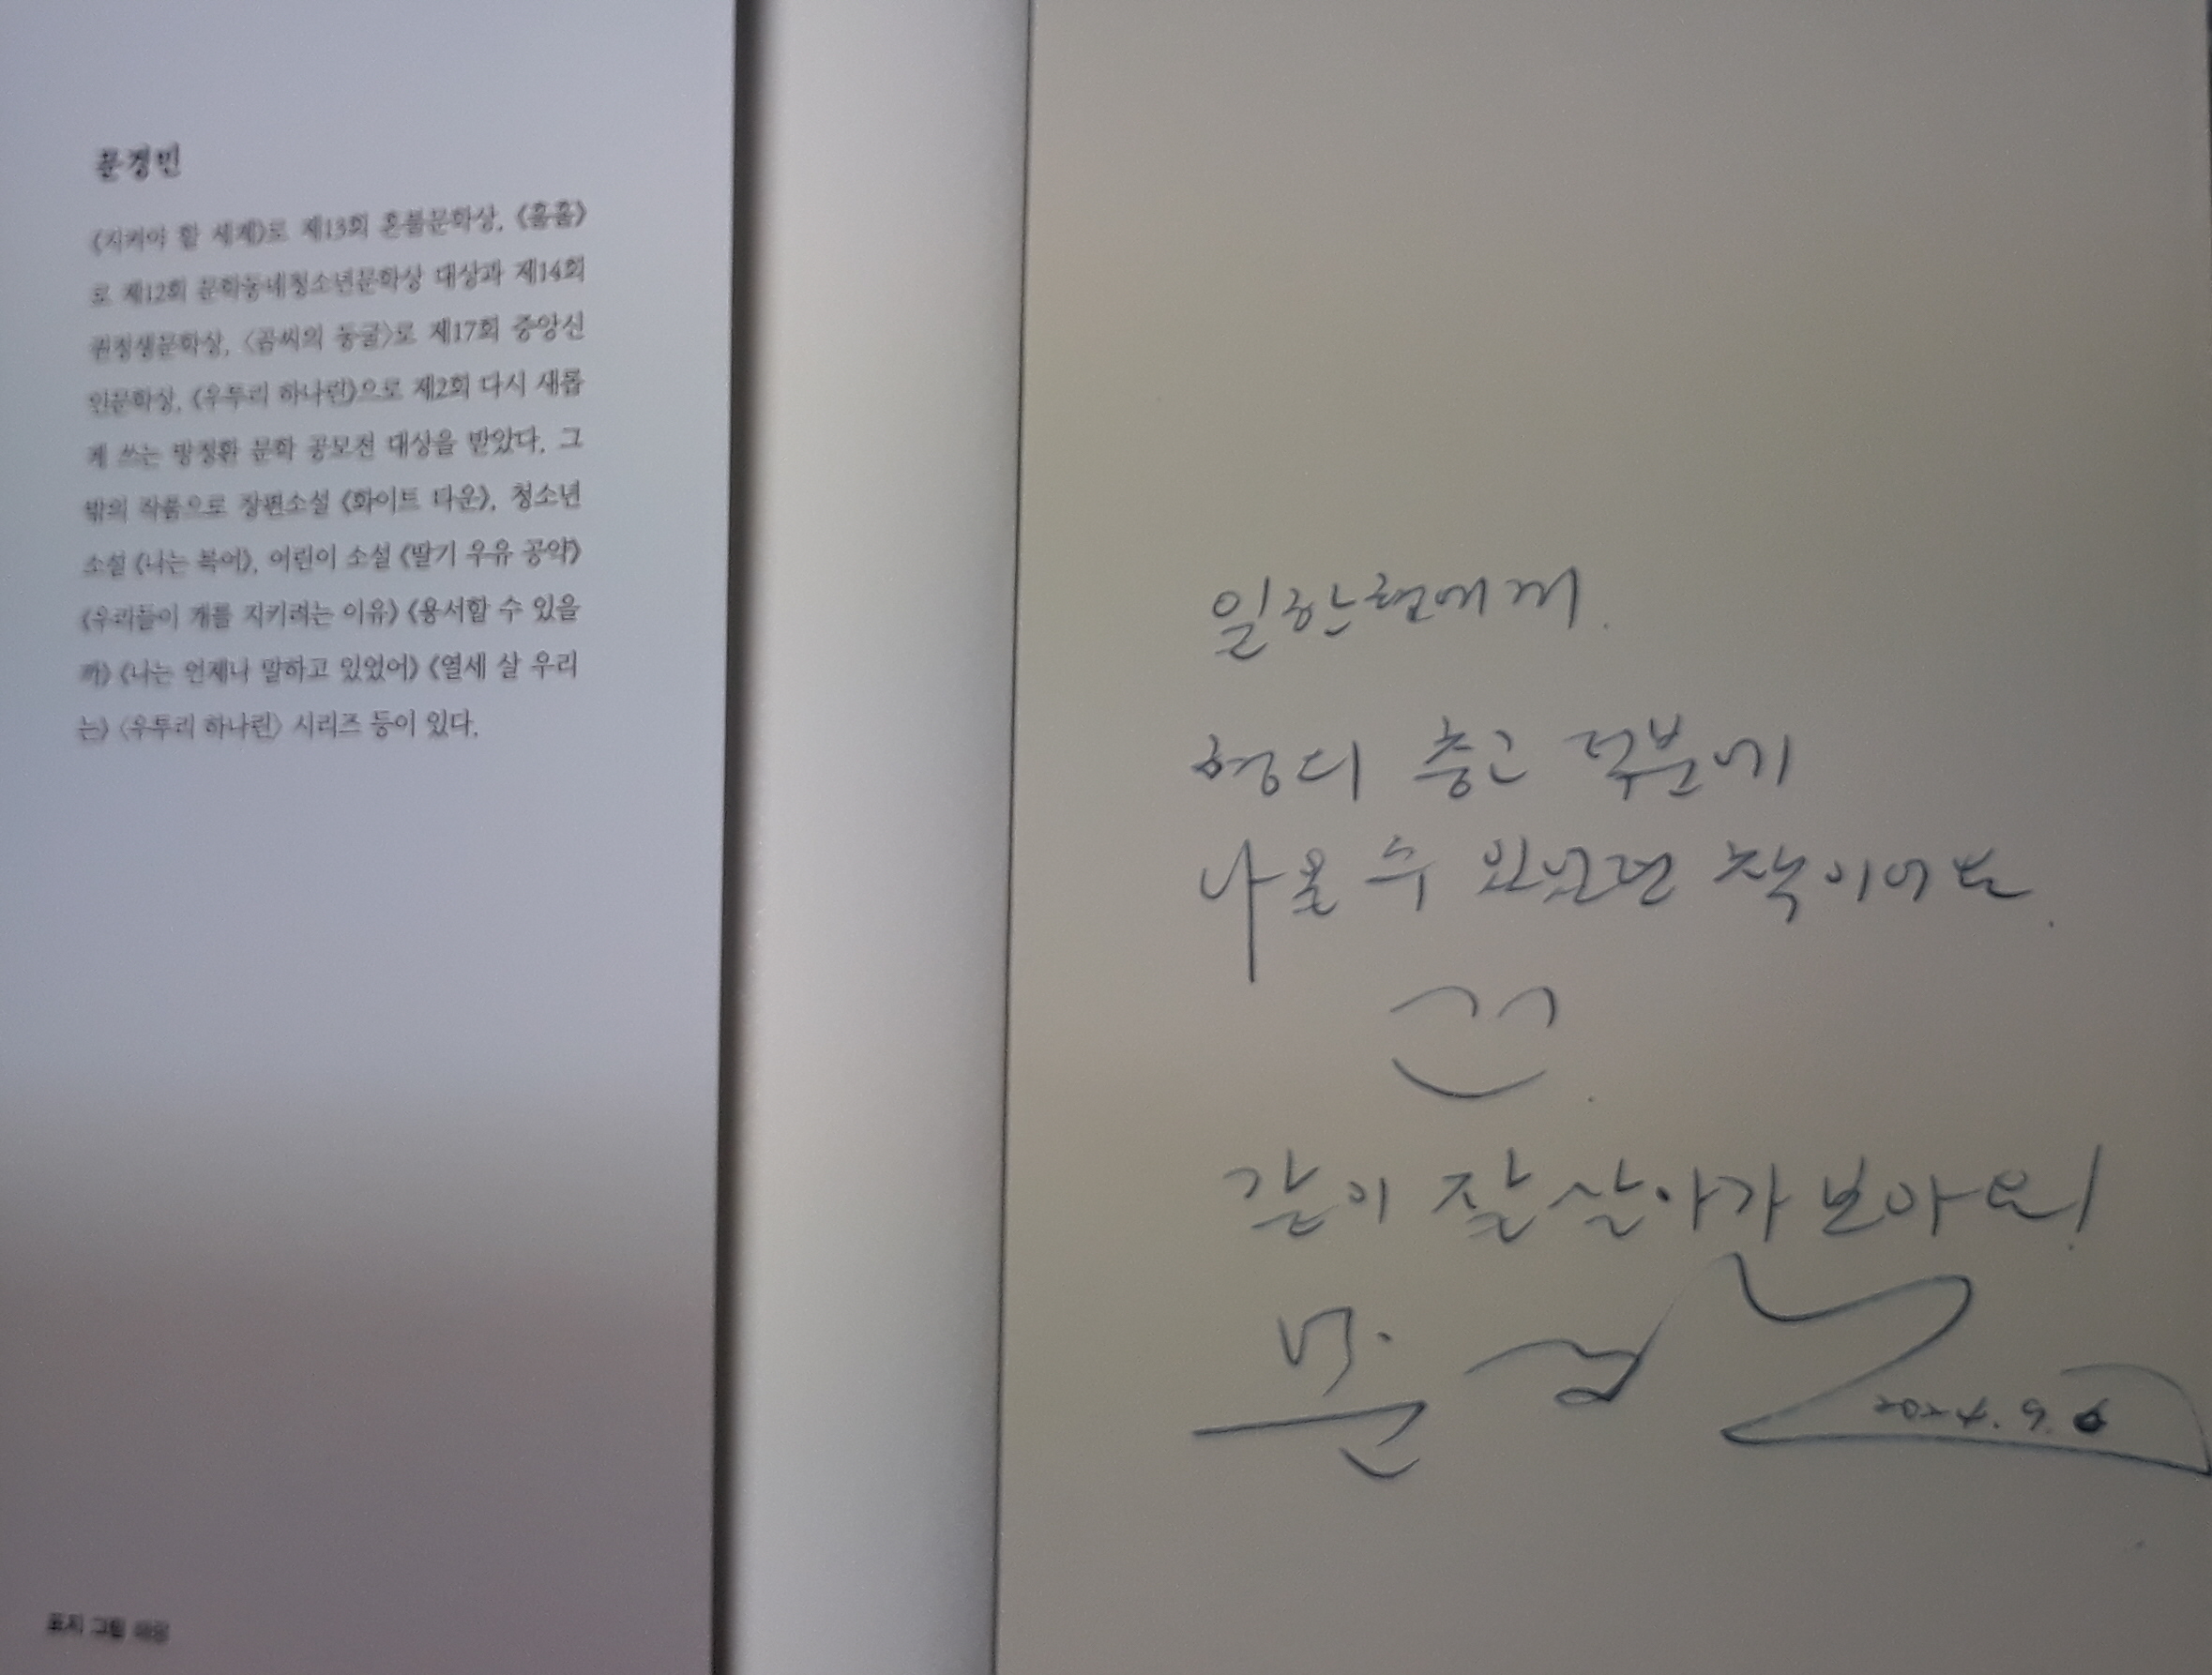 문경민
《지켜야 할 세계》로 제13회 혼불문학상, 《훌훌》
로 제12회 문학동네청소년문학상 대상과 제14회
권정생문학상, 〈곰씨의 동굴〉로 제17회 중앙신
인문학상, 《우투리 하나린》으로 제2회 다시 새롭
게 쓰는 방정환 문학 공모전 대상을 받았다. 그
밖의 작품으로 장편소설 《화이트 타운》, 청소년
소설 《나는 복어》, 어린이 소설 《딸기 우유 공약》
《우리들이 개를 지키려는 이유》 《용서할 수 있을
까》 《나는 언제나 말하고 있었어》 《열세 살 우리
는》 〈우투리 하나린〉 시리즈 등이 있다.
표지 그림
일한형에게.
형의 충고 덕분에
나올 수 있었던 책이어요.
같이 잘 살아가 보아요!
문경민
2024. 9. 6